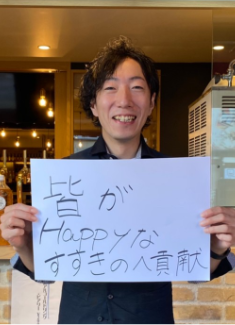 皆が
Happyな
すすきのへ貢献